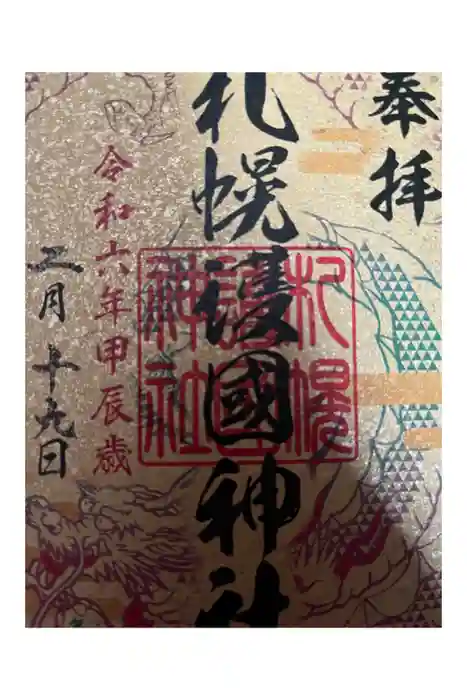 奉拝
札幌護國神社
札幌
護國
神社
令和六年甲辰歳
三月十九日